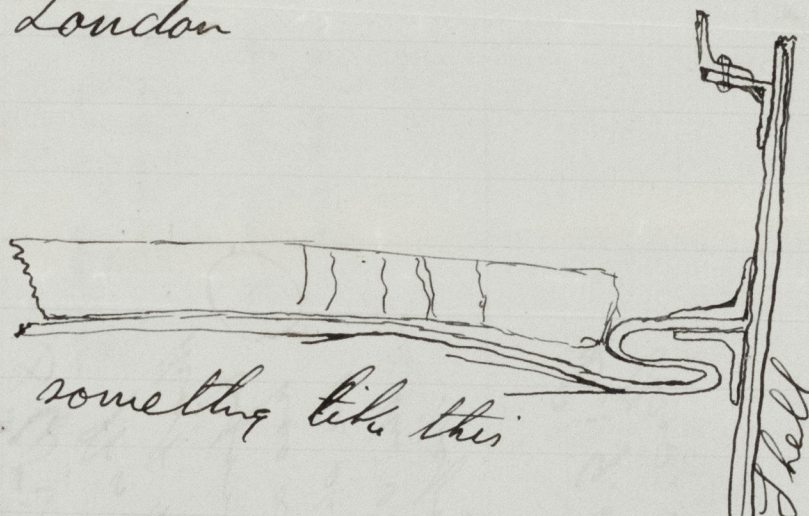 London
something like this
Shell